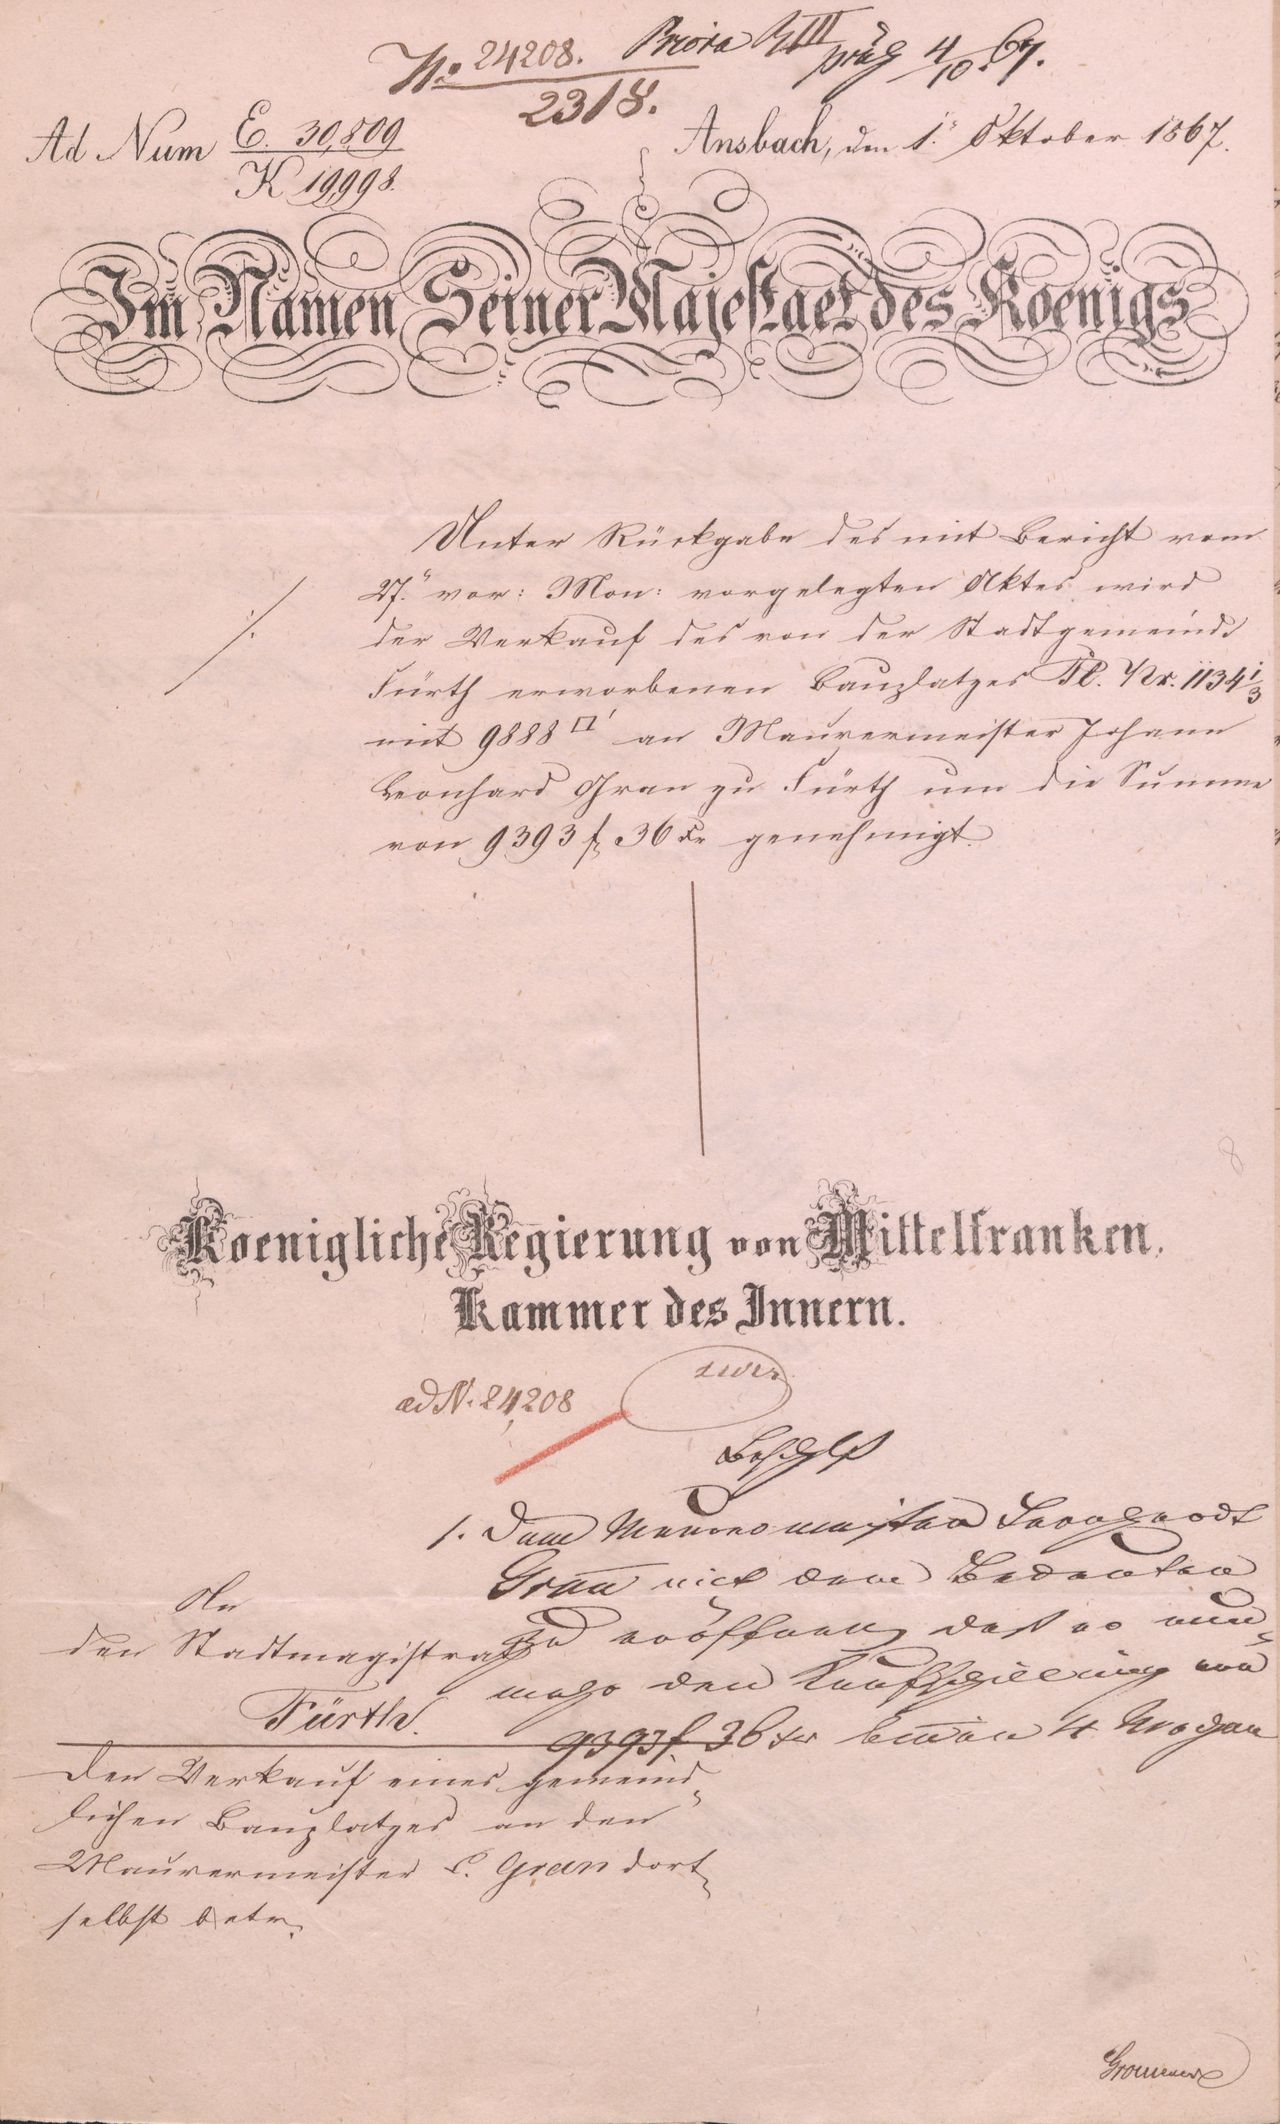 No. 24208. Priora
2318.
präs 4/10. 67.
Ad Num E. 30,809
K 19998.
Ansbach, den 1. Oktober 1867.
Im Namen Seiner Majestaet des Koenigs
Unter Rückgabe des mit Bericht vom
27. vor: Mon: vorgelegten Aktes wird
./.
der Verkauf des von der Stadtgemeinde
Fürth erworbenen Bauplatzes Pl. Nr. 1134 1/3
mit 9888 □' an Maurermeister Johann
Leonhard Gran zu Fürth um die Summe
von 9393 f 36 Xr genehmigt.
8
Koenigliche Regierung von Mittelfranken,
Kammer des Innern.
ad N. 24,208
Beschluß
1. Dem Maurermeister Leonhardt
Gran mit dem Bedeuten
zu eröffnen, daß er nun-
mehr den Kaufschilling von
9393 f 36 xr binnen 4 Wochen
An
den Stadtmagistrat
Fürth.
Den Verkauf eines gemeind-
lichen Bauplatzes an den
Maurermeister L. Gran dort-
selbst betr.